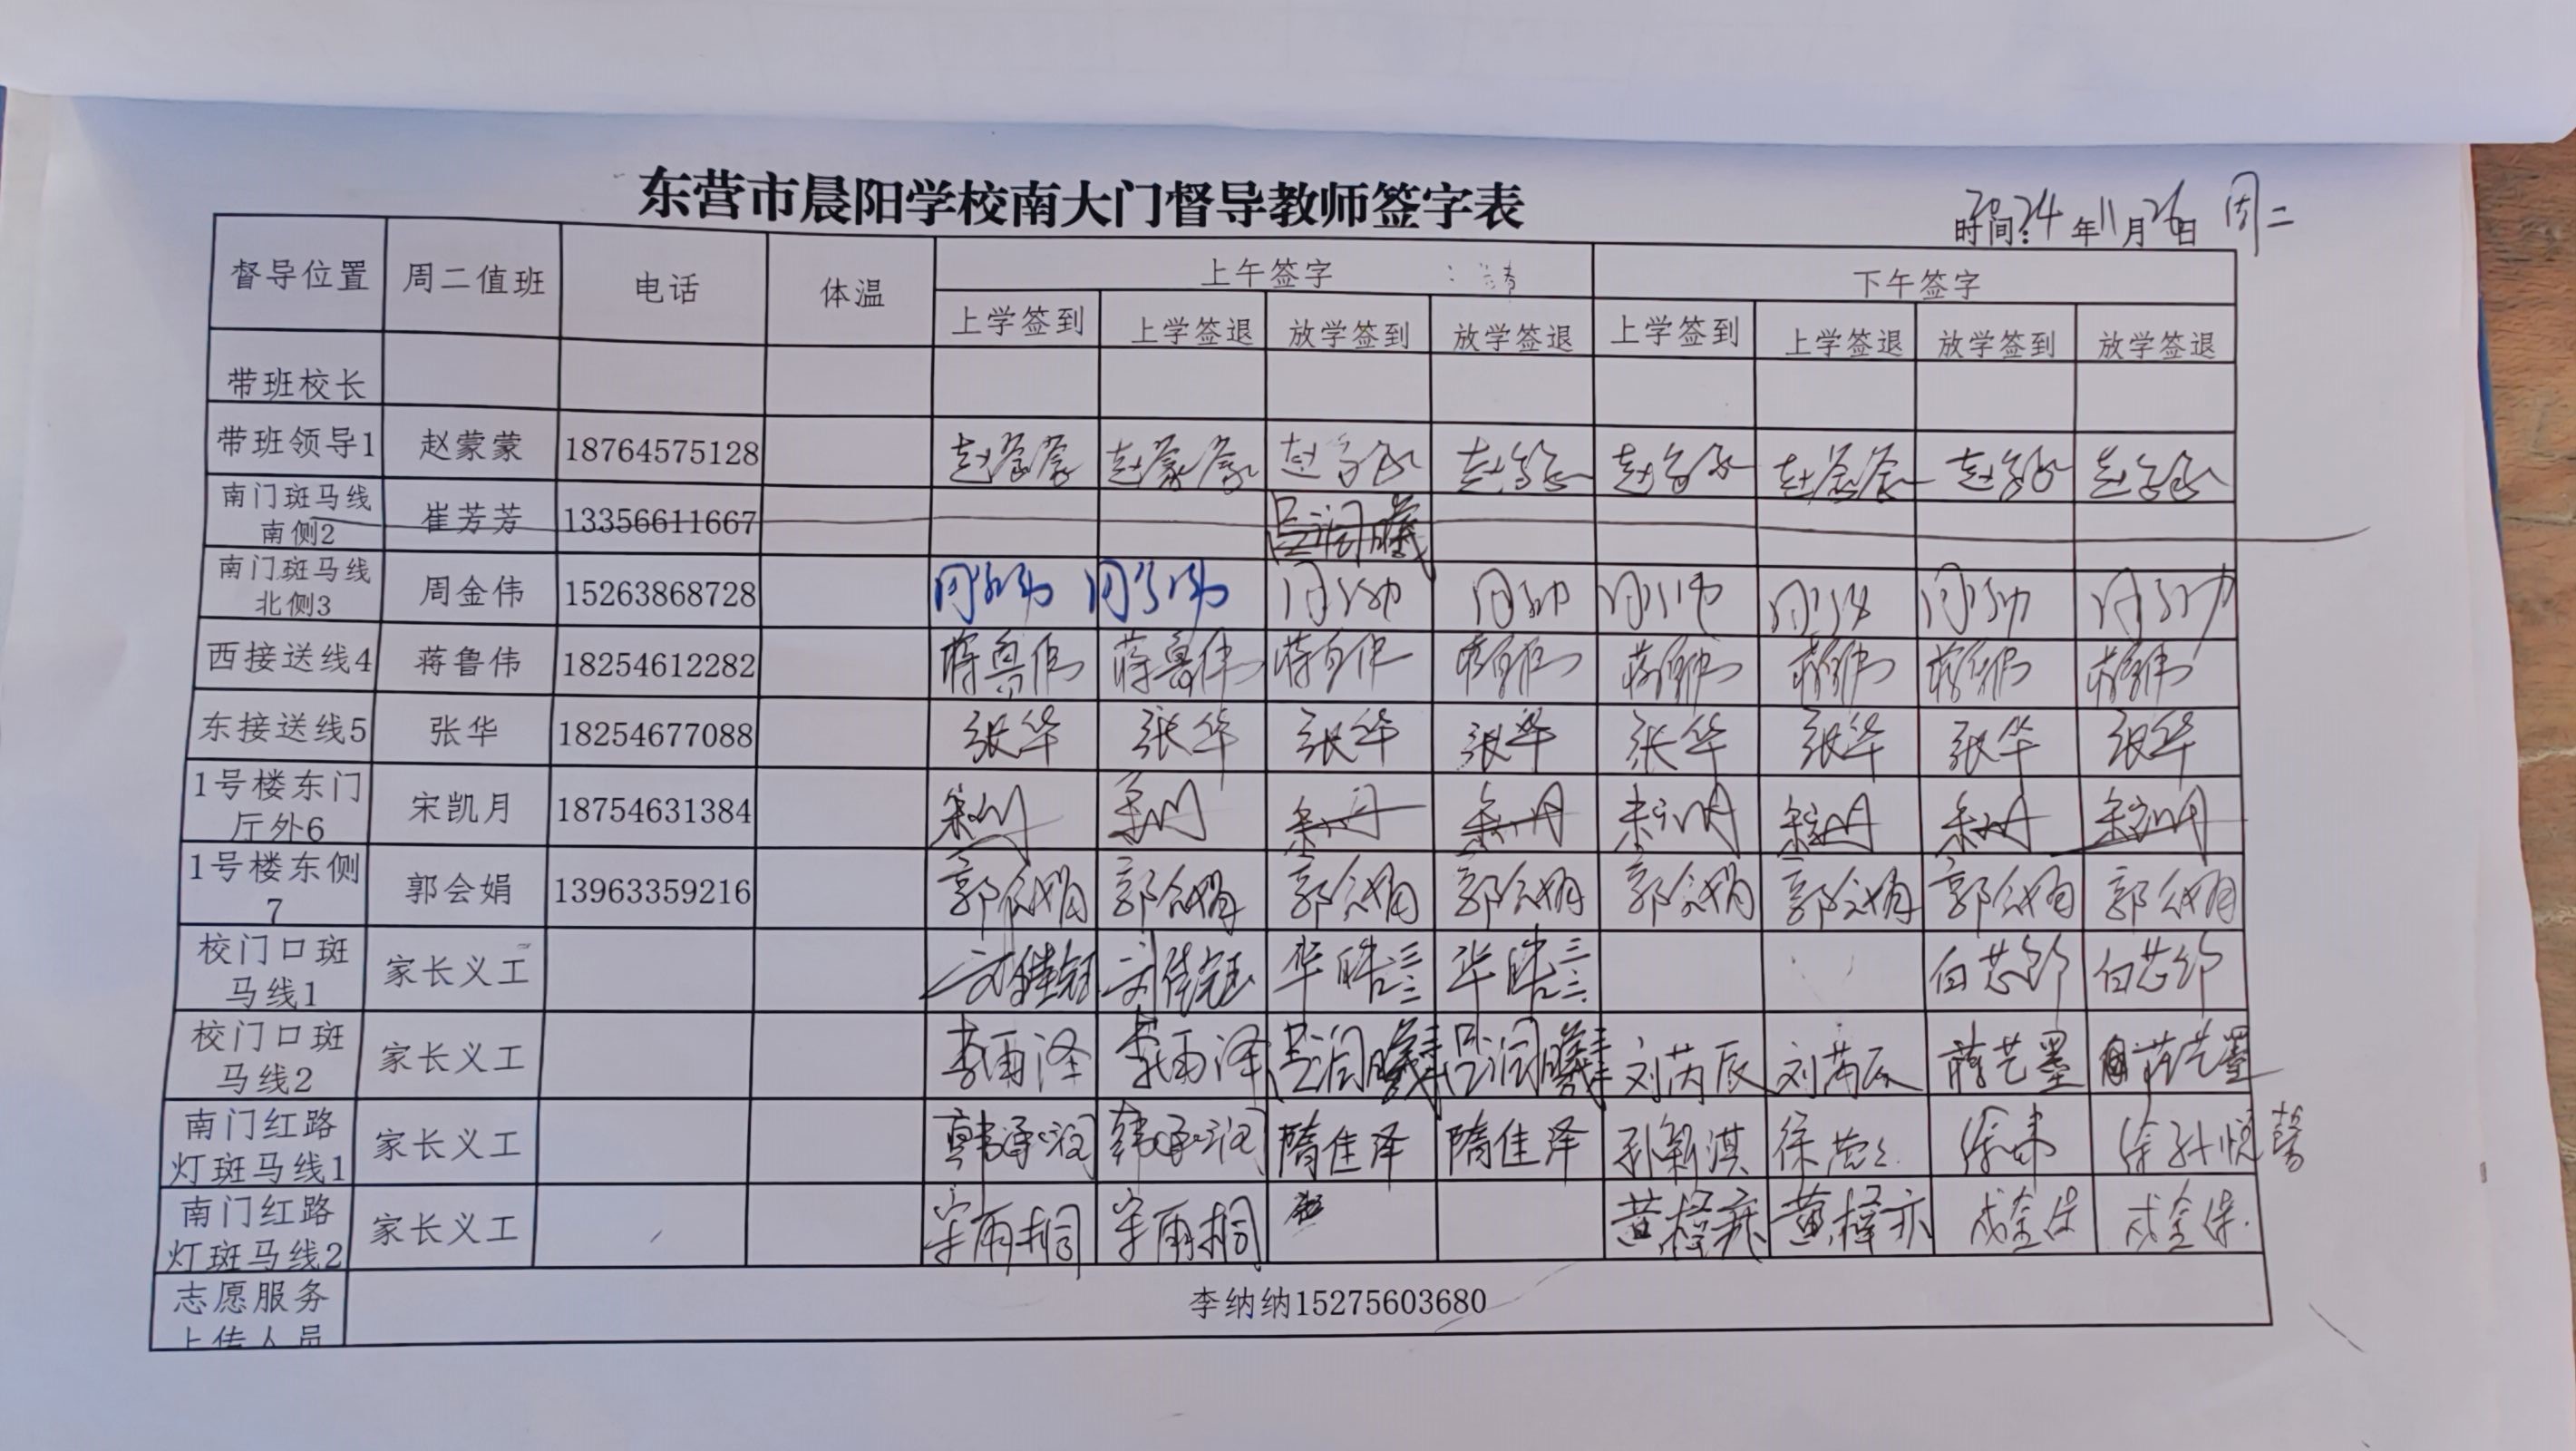 东营市晨阳学校南大门督导教师签字表
时间:2024年11月26日 周二
督导位置 周二值班 电话 体温 上午签字 下午签字
上学签到 上学签退 放学签到 放学签退 上学签到 上学签退 放学签到 放学签退
带班校长
带班领导1 赵蒙蒙 18764575128 赵蒙蒙 赵蒙蒙 赵蒙蒙 赵蒙蒙 赵蒙蒙 赵蒙蒙 赵蒙蒙 赵蒙蒙
南门斑马线
南侧2 崔芳芳 13356611667 吕润曦
南门斑马线
北侧3 周金伟 15263868728 周金伟 周金伟 周金伟 周金伟 周金伟 周金伟 周金伟 周金伟
西接送线4 蒋鲁伟 18254612282 蒋鲁伟 蒋鲁伟 蒋鲁伟 蒋鲁伟 蒋鲁伟 蒋鲁伟 蒋鲁伟 蒋鲁伟
东接送线5 张华 18254677088 张华 张华 张华 张华 张华 张华 张华 张华
1号楼东门
厅外6 宋凯月 18754631384 宋凯月 宋凯月 宋凯月 宋凯月 宋凯月 宋凯月 宋凯月 宋凯月
1号楼东侧
7 郭会娟 13963359216 郭会娟 郭会娟 郭会娟 郭会娟 郭会娟 郭会娟 郭会娟 郭会娟
校门口斑
马线1 家长义工 刘佳钰 刘佳钰 华皓 三二 华皓 三二
校门口斑
马线2 家长义工 李雨泽 李雨泽 吕润曦 吕润曦 刘芮辰 刘芮辰 蒋艺墨 蒋艺墨
南门红路
灯斑马线1 家长义工 韩承润 韩承润 隋佳泽 隋佳泽
南门红路
灯斑马线2 家长义工 宋雨桐 宋雨桐 黄梓亦 黄梓亦
志愿服务
上传人员 李纳纳15275603680